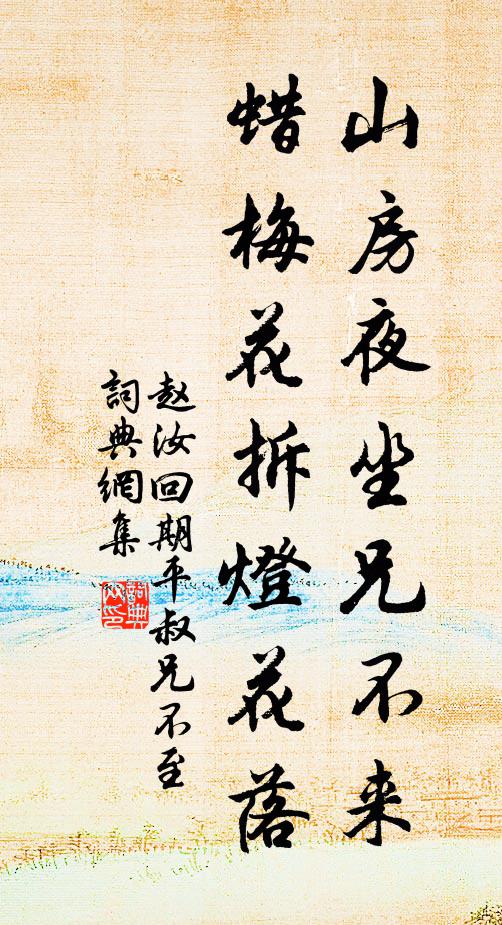 山房夜坐兄不来
蜡梅花拆燈花落
赵汝回期平叔兄不至
詞典網集